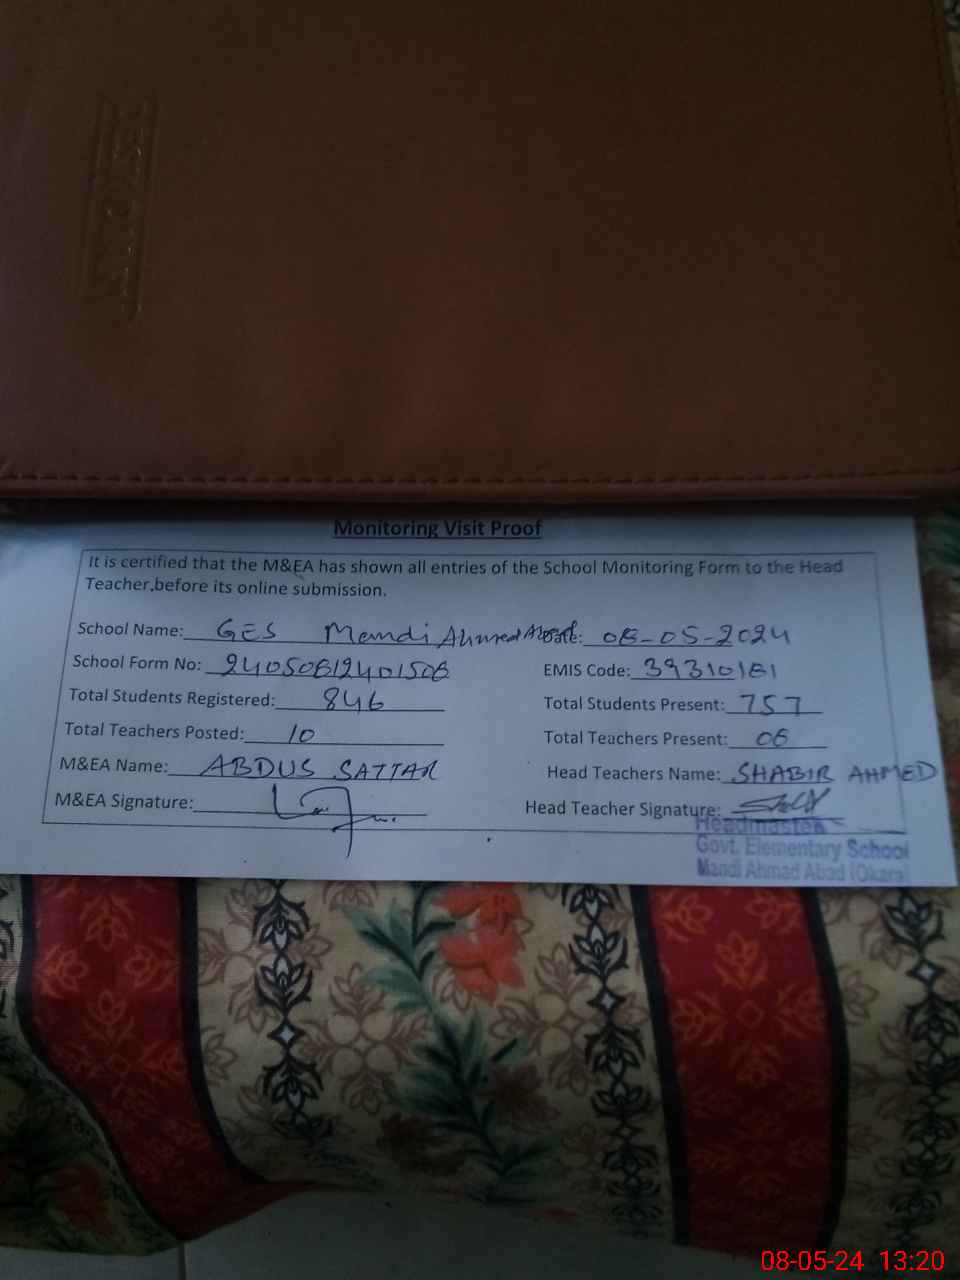 Monitoring Visit Proof
It is certified that the M&EA has shown all entries of the School Monitoring Form to the Head
Teacher,before its online submission.
School Name: GES Mandi Ahmed Abad Date: 08-05-2024
School Form No: 24050812401508 EMIS Code: 39310161
Total Students Registered: 846 Total Students Present: 757
Total Teachers Posted: 10 Total Teachers Present: 06
M&EA Name: ABDUS SATTAR Head Teachers Name: SHABIR AHMED
M&EA Signature: Head Teacher Signature:
Headmaster
Govt. Elementary School
Mandi Ahmad Abad (Okara)
08-05-24 13:20